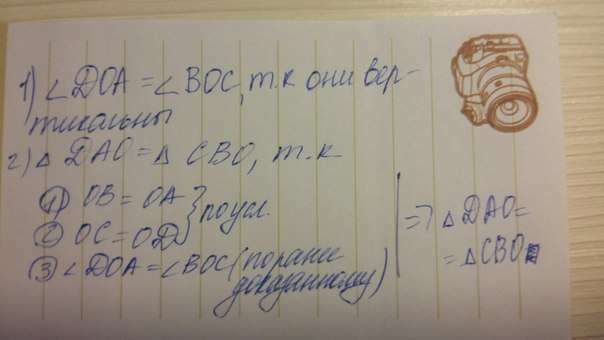 1) ∠DOA = ∠BOC, т.к они вер-
тикальны
2) △ DAO = △ CBO, т.к
① OB = OA } по усл.
② OC = OD
③ ∠DOA = ∠BOC (по ранее доказанному)
=> △DAO =
= △CBO